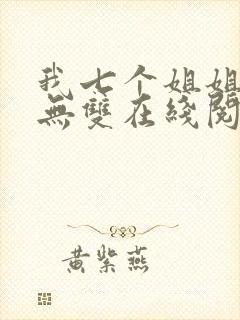 我七个姐姐
無雙在綫閱
黄紫燕